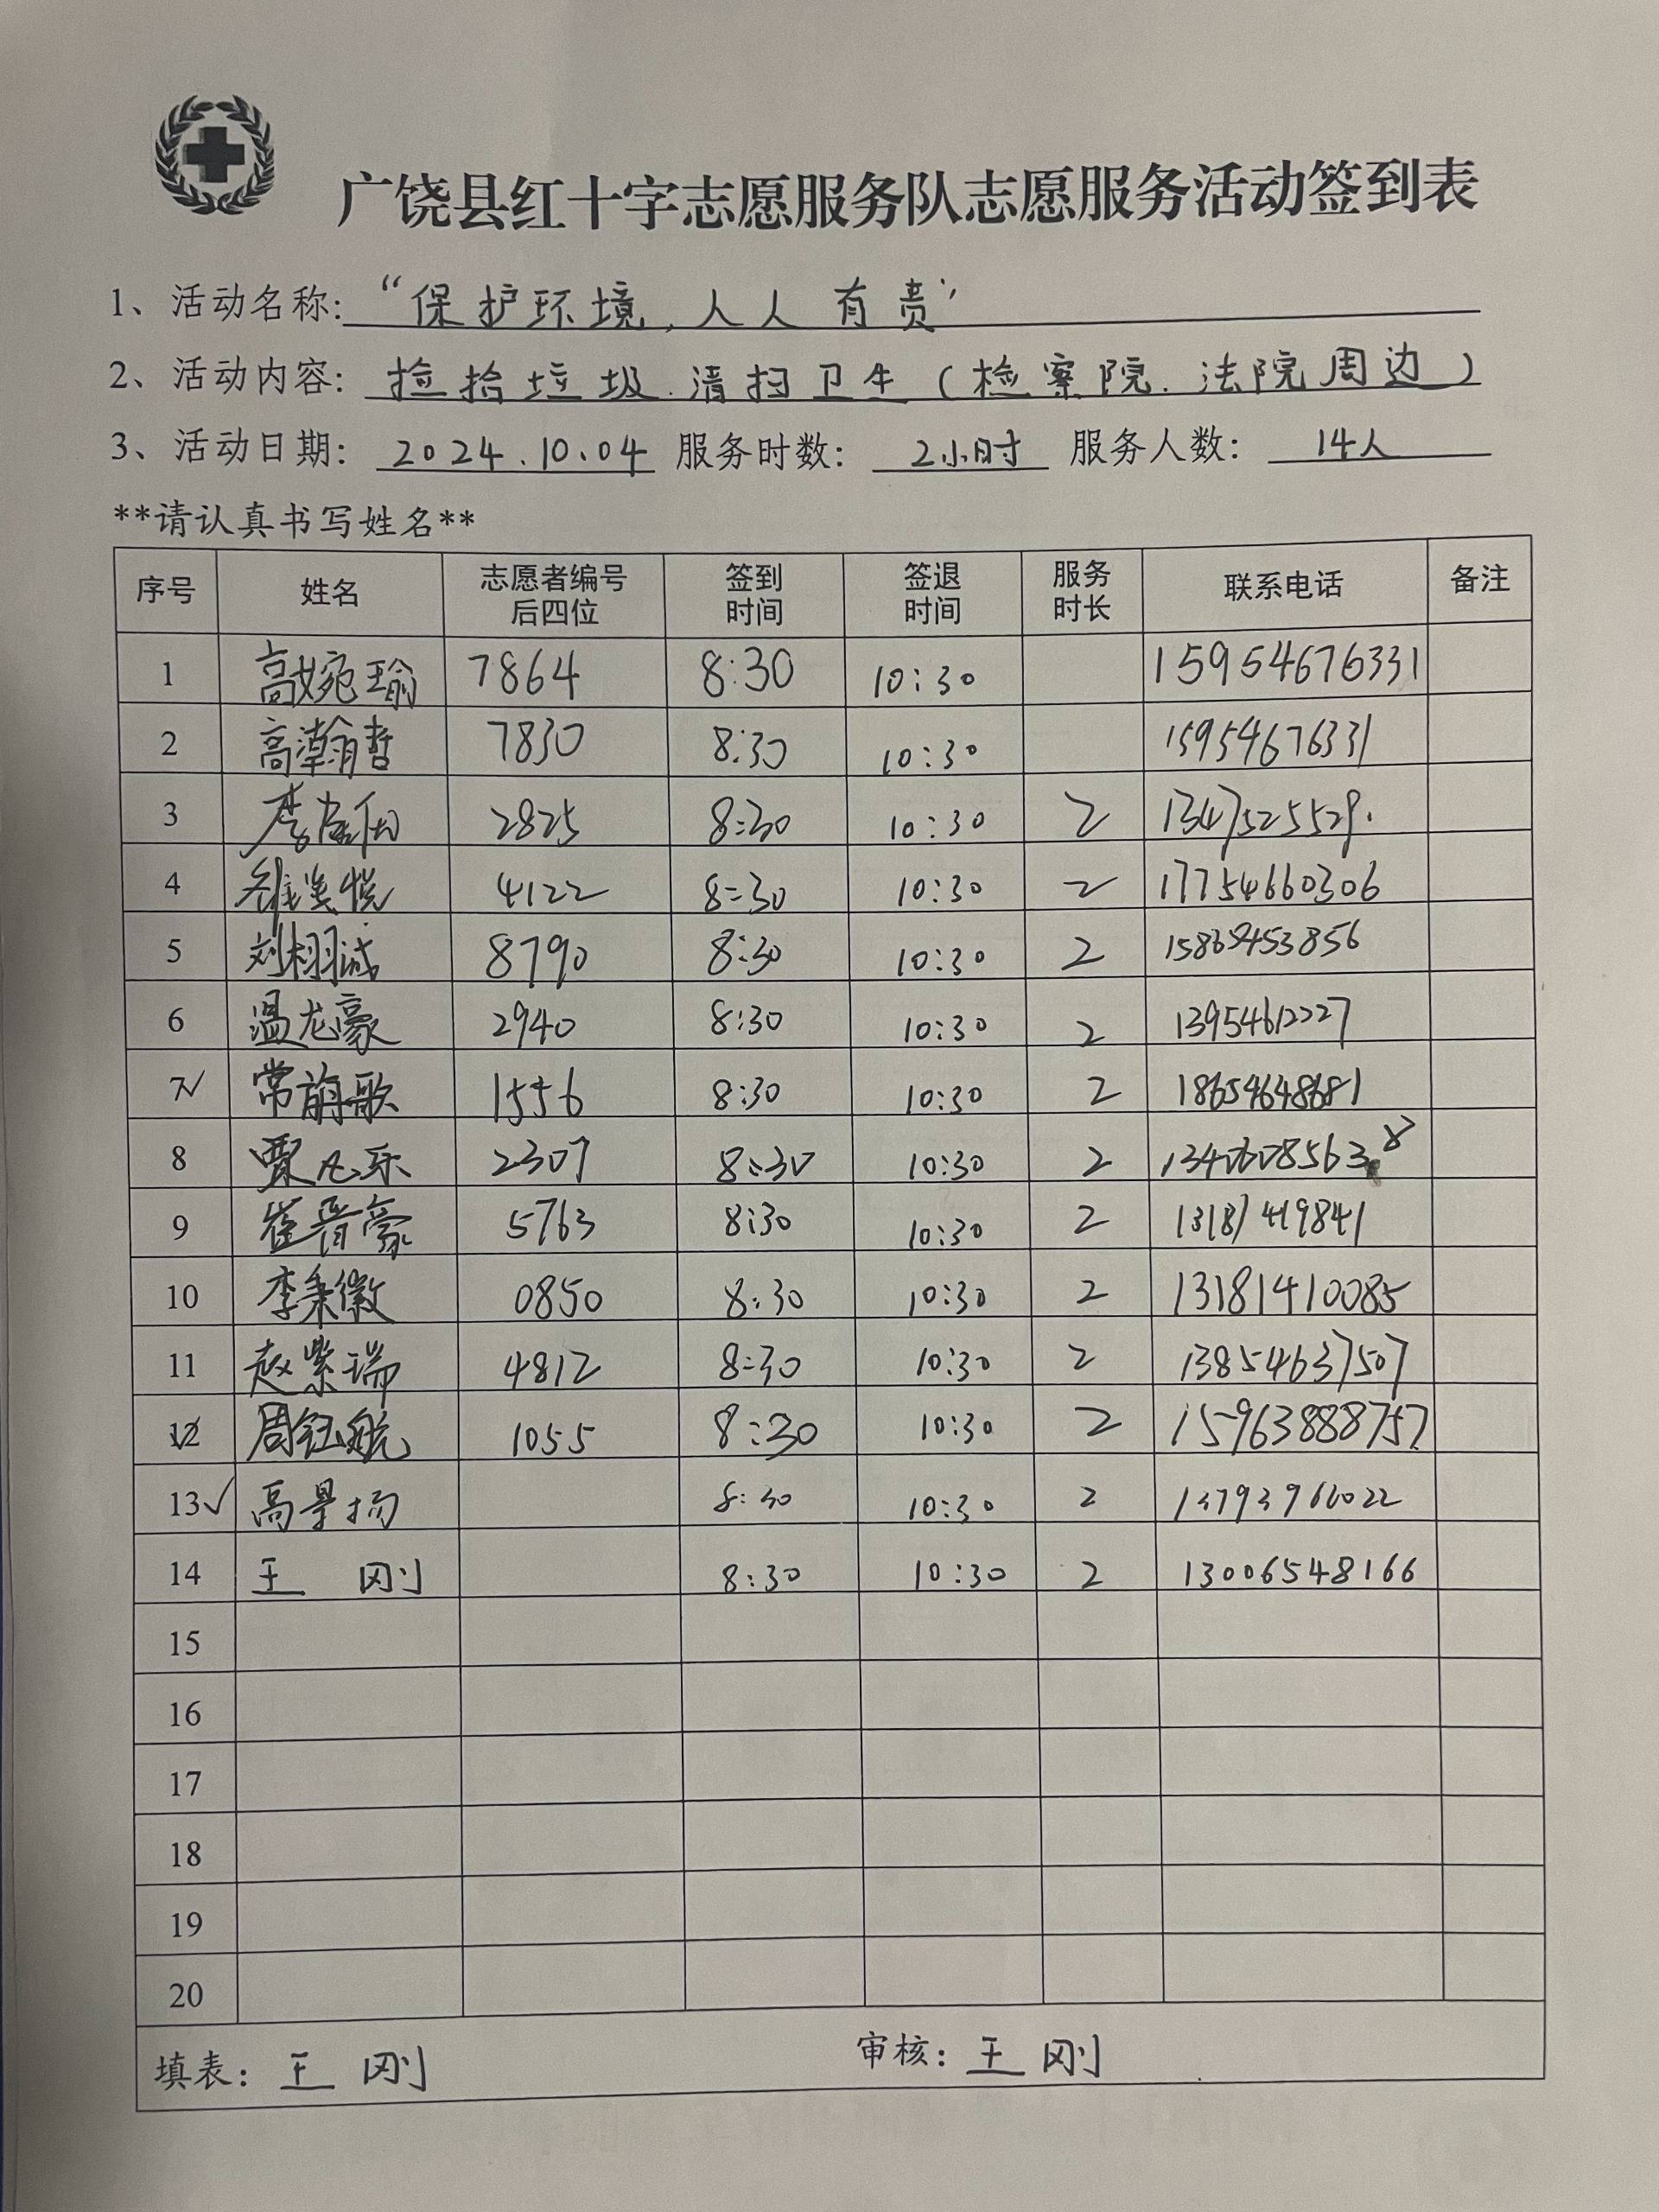 广饶县红十字志愿服务队志愿服务活动签到表
1、活动名称: “保护环境,人人有责”
2、活动内容: 捡拾垃圾.清扫卫生(检察院.法院周边)
3、活动日期: 2024.10.04 服务时数: 2小时 服务人数: 14人
**请认真书写姓名**
序号 姓名 志愿者编号后四位 签到时间 签退时间 服务时长 联系电话 备注
1 高婉瑜 7864 8:30 10:30 15954676331
2 高瀚哲 7830 8:30 10:30 15954676331
3 李 2825 8:30 10:30 2
4 悦 4122 8:30 10:30 2 17754660306
5 刘栩诚 8790 8:30 10:30 2
6 温龙豪 2940 8:30 10:30 2 13954612227
7√ 常萌歌 1556 8:30 10:30 2 18654648681
8 贾凡乐 2307 8:30 10:30 2
9 崔晋豪 5763 8:30 10:30 2 13187419841
10 李秉徽 0850 8:30 10:30 2 13181410085
11 赵紫瑞 4812 8:30 10:30 2 13854637507
12√ 周钰航 1055 8:30 10:30 2 15963888757
13√ 高景扬 8:30 10:30 2 13793966022
14 王刚 8:30 10:30 2 13006548166
15
16
17
18
19
20
填表: 王刚 审核: 王刚